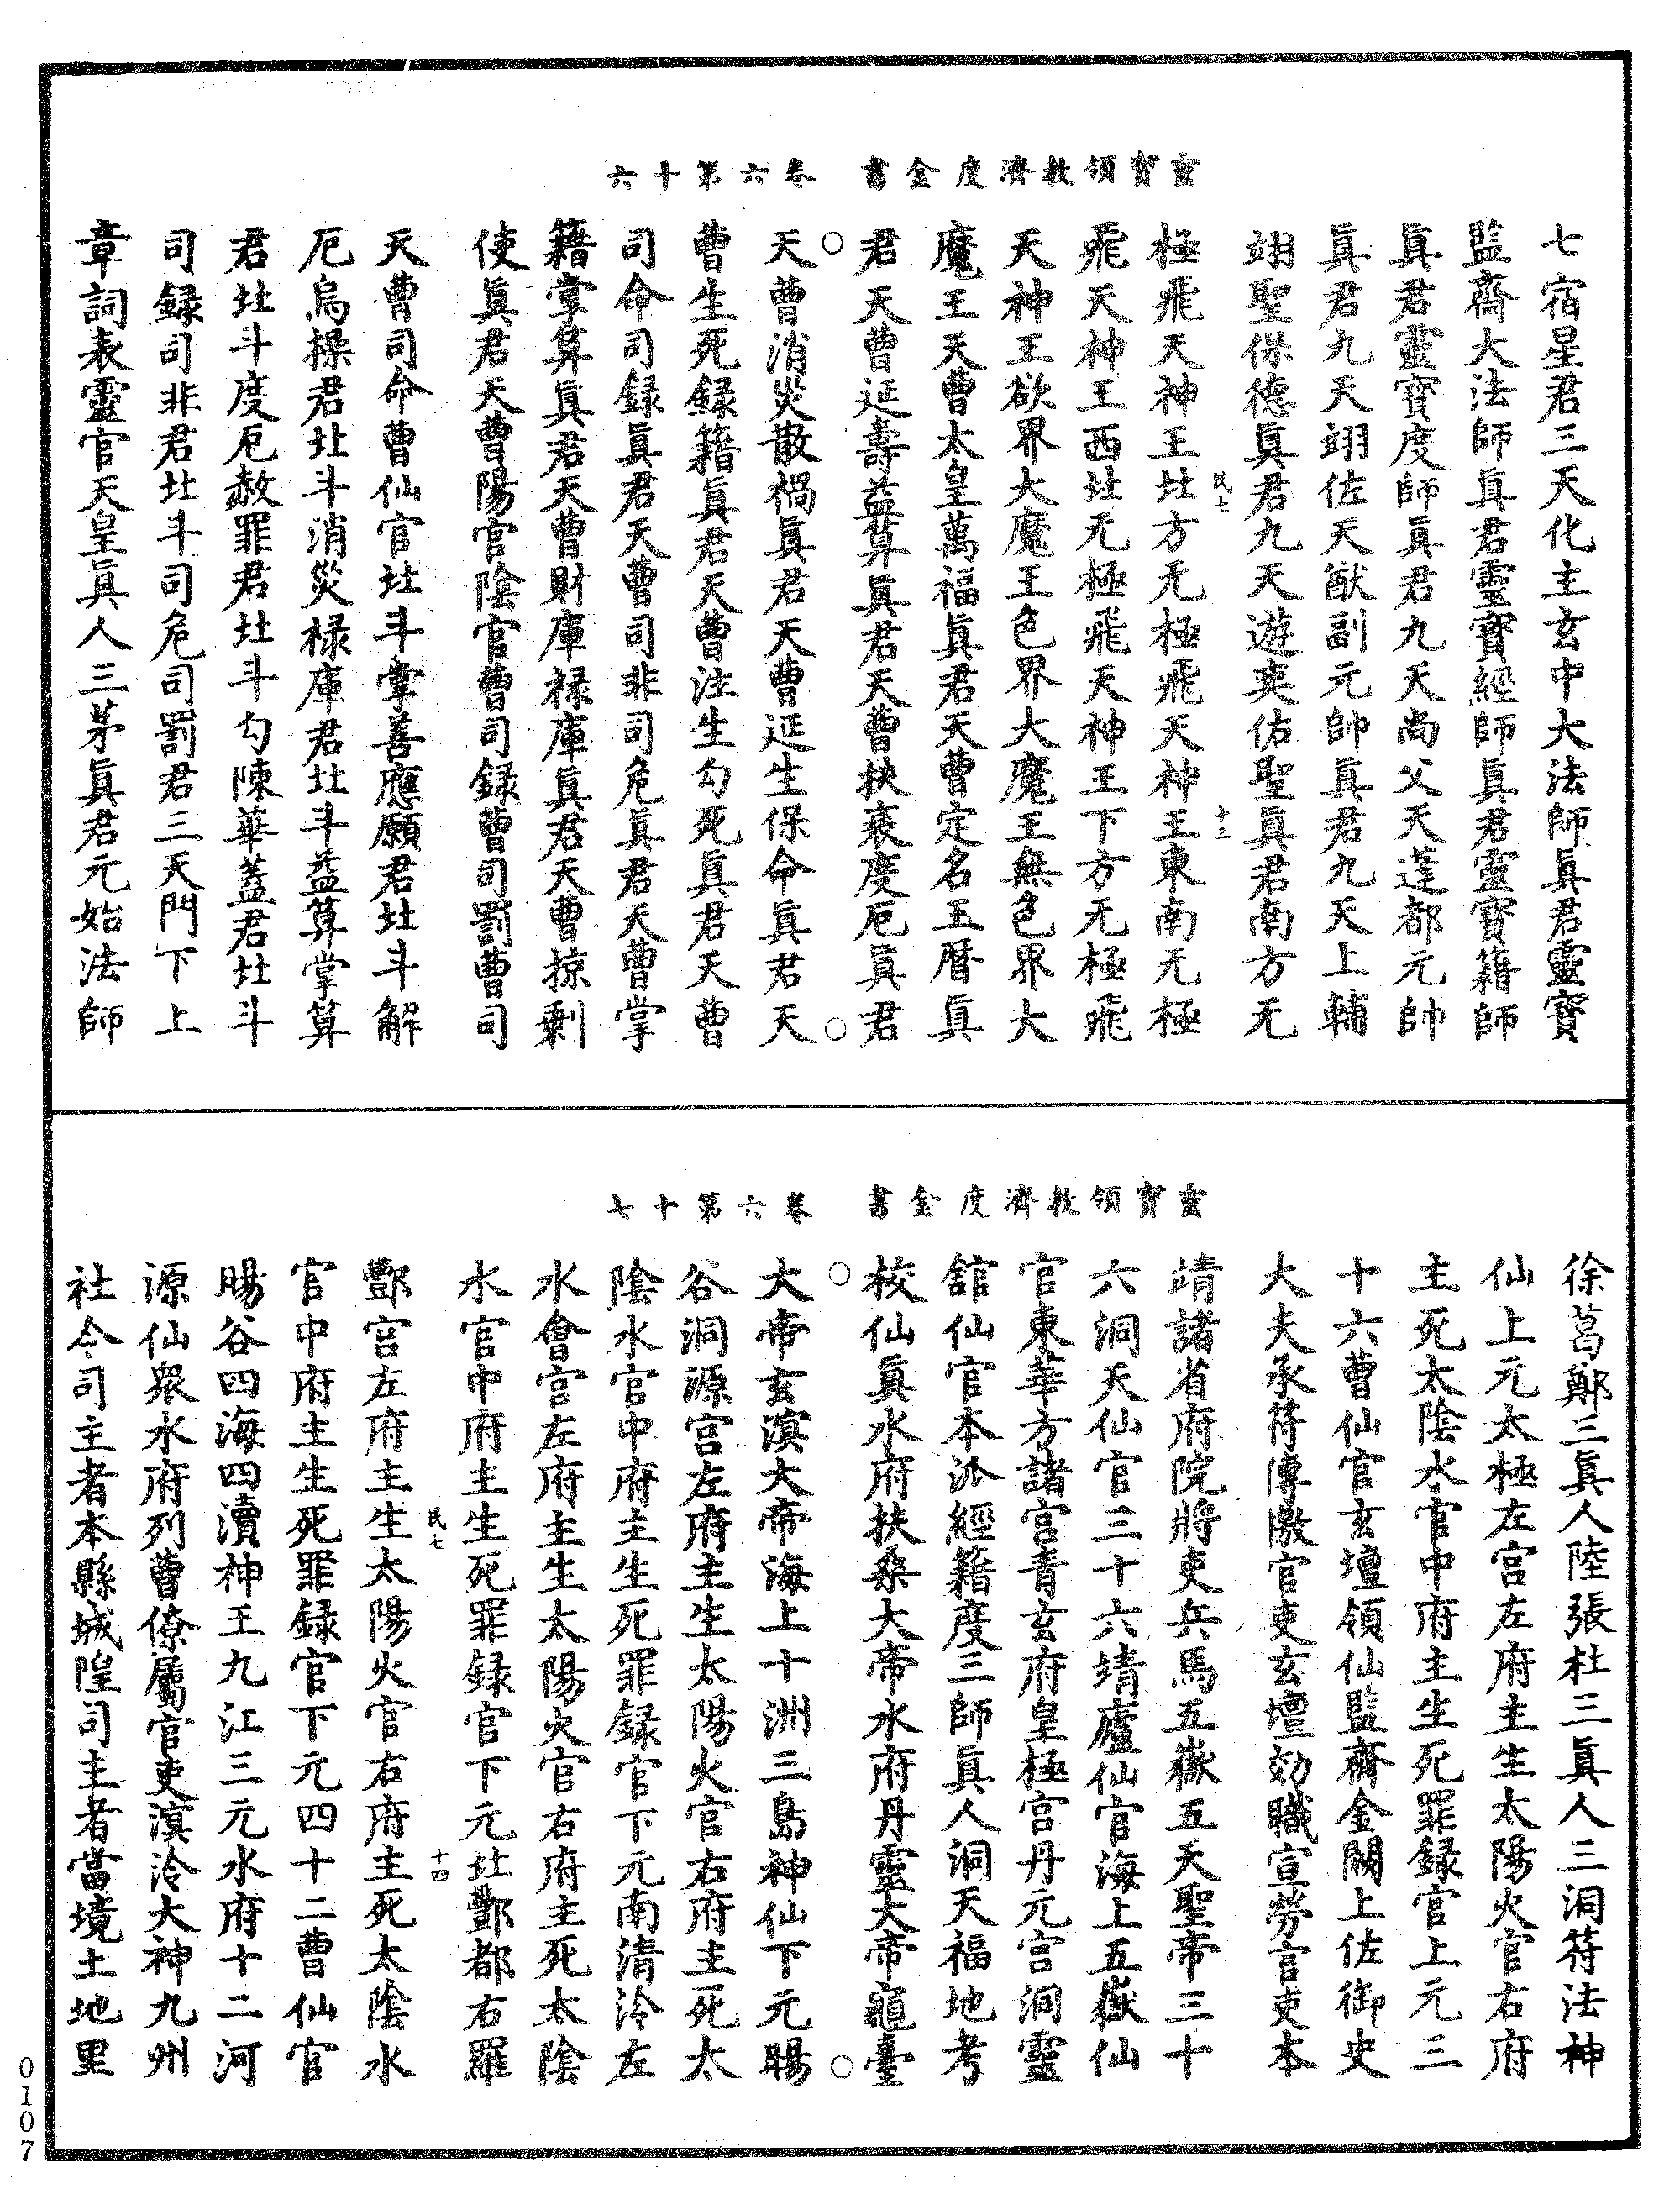 靈寶領教濟度金書　卷六第十六
七宿星君三天化主玄中大法師眞君靈寶
監齋大法師眞君靈寶經師眞君靈寶籍師
眞君靈寶度師眞君九天尚父天蓬都元帥
眞君九天翊佐天猷副元帥眞君九天上輔
翊聖保德眞君九天遊奕佑聖眞君南方无
民七　十三
極飛天神王北方无極飛天神王東南无極
飛天神王西北无極飛天神王下方无極飛
天神王欲界大魔王色界大魔王無色界大
魔王天曹太皇萬福眞君天曹定名玉曆眞
君天曹延壽益算眞君天曹扶衰度厄眞君
天曹消災散禍眞君天曹延生保命眞君天
曹生死錄籍眞君天曹注生勾死眞君天曹
司命司録眞君天曹司非司危眞君天曹掌
籍掌算眞君天曹財庫禄庫眞君天曹掠剩
使眞君天曹陽官陰官曹司録曹司罰曹司
天曹司命曹仙官北斗掌善應願君北斗解
厄烏檪君北斗消災禄庫君北斗益算掌算
君北斗度厄赦罪君北斗勾陳華蓋君北斗
司録司非君北斗司危司罰君三天門下上
章詞表靈官天皇眞人三茅眞君元始法師
靈寶領教濟度金書　卷六第十七
徐葛鄭三眞人陸張杜三眞人三洞符法神
仙上元太極左宫左府主生太陽火官右府
主死太陰水官中府主生死罪録官上元三
十六曹仙官玄壇領仙監齋金闕上佐御史
大夫承符傳激官吏玄壇効職宣勞官吏本
靖諸省府院將吏兵馬五嶽五天聖帝三十
六洞天仙官三十六靖廬仙官海上五嶽仙
官東華方諸宮青玄府皇極宫丹元宫洞靈
舘仙官本派經籍度三師眞人洞天福地考
校仙眞水府扶桑大帝水府丹靈大帝龜臺
大帝玄溟大帝海上十洲三島神仙下元暘
谷洞源宫左府主生太陽火官右府主死太
陰水官中府主生死罪録官下元南清泠左
水會宫左府主生太陽火官右府主死太陰
水官中府主生死罪録官下元北酆都右羅
民七　十四
酆宫左府主生太陽火官右府主死太陰水
官中府主生死罪録官下元四十二曹仙官
暘谷四海四瀆神王九江三元水府十二河
源仙衆水府列曹僚屬官吏溟泠大神九州
社令司主者本縣城隍司主者當境土地里
0107